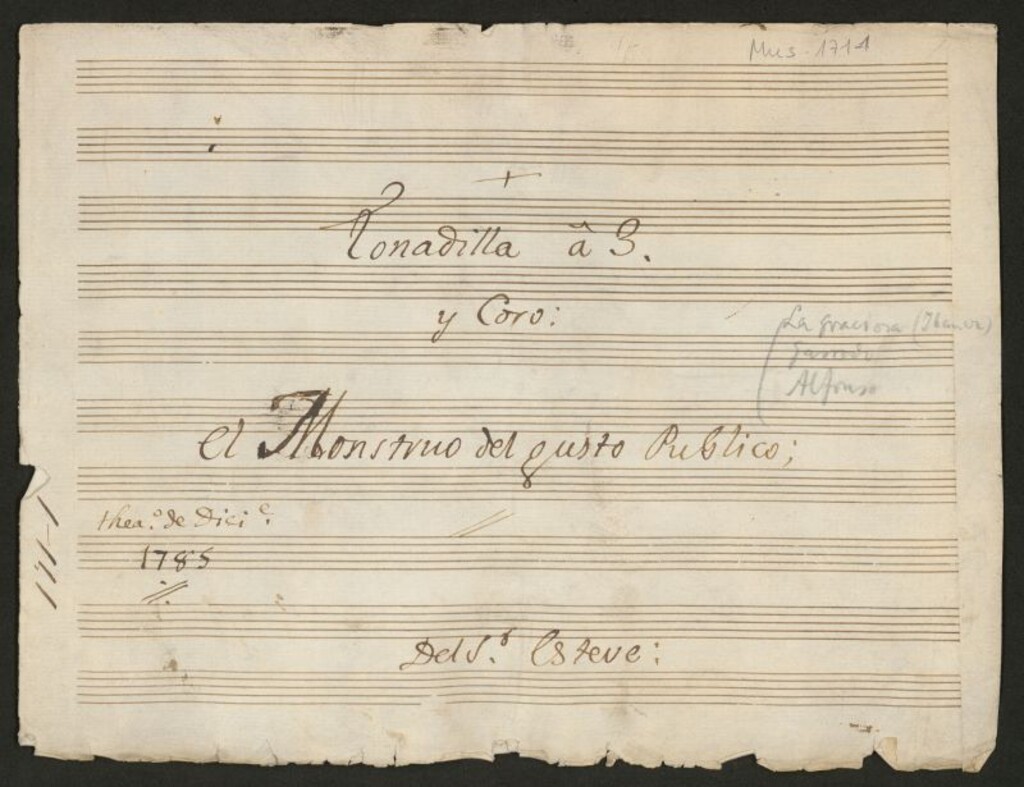 Mus. 1714
+
Tonadilla â 3.
y Coro:
La graciosa
Garrido
Alfonso
el Monstruo del gusto Publico;
thea.º de Dici.e
1785
111-1
Del S.r Esteve: